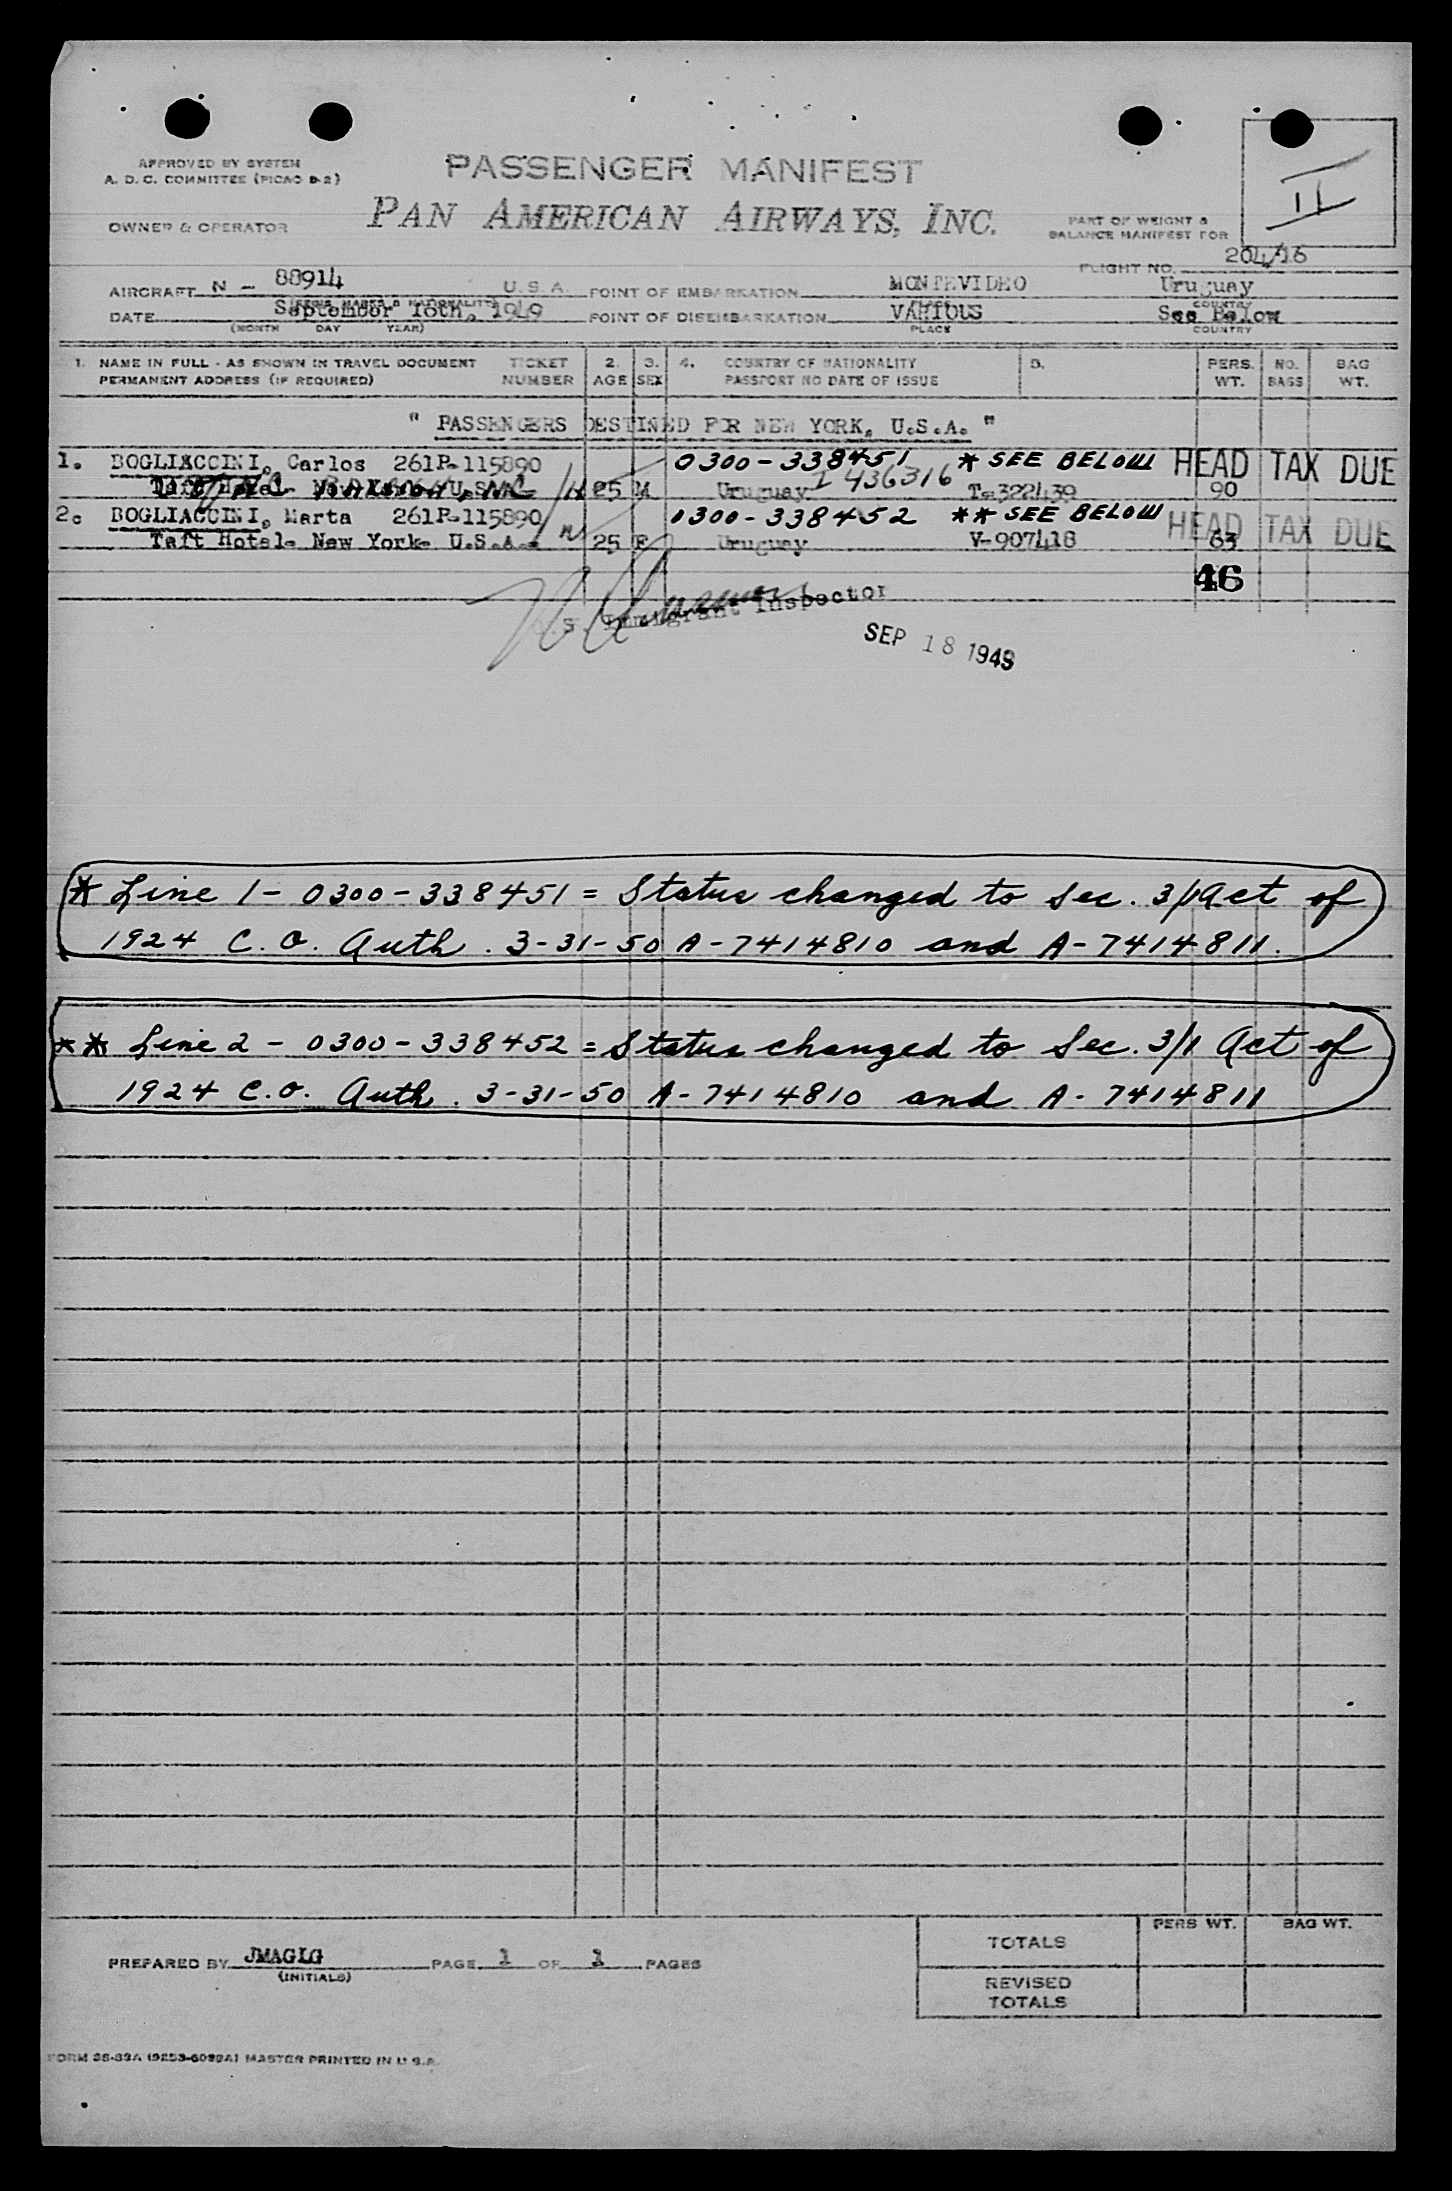 APPROVED BY SYSTEM
A. D. C. COMMITTEE (PICAO B-2)
PASSENGER MANIFEST
II
OWNER & OPERATOR
PAN AMERICAN AIRWAYS, INC.
PART OF WEIGHT &
BALANCE MANIFEST FOR
FLIGHT NO. 204/16
AIRCRAFT N - 88914 U.S.A. POINT OF EMBARKATION MONTEVIDEO Uruguay
(REGIS. MARKS & NATIONALITY) PLACE COUNTRY
DATE September 16th, 1949 POINT OF DISEMBARKATION VARIOUS See Below
(MONTH DAY YEAR) PLACE COUNTRY
1. NAME IN FULL - AS SHOWN IN TRAVEL DOCUMENT TICKET 2. 3. 4. COUNTRY OF NATIONALITY 5. PERS. NO. BAG
PERMANENT ADDRESS (IF REQUIRED) NUMBER AGE SEX PASSPORT NO DATE OF ISSUE WT. BAGS WT.
" PASSENGERS DESTINED FOR NEW YORK, U.S.A. "
1. BOGLIACCINI, Carlos 261R-115890 0300-338451 * SEE BELOW HEAD TAX DUE
Taft Hotel- New York- U.S.A. 25 M Uruguay I 436316 T-322439 90
2. BOGLIACCINI, Marta 261R-115890 0300-338452 ** SEE BELOW HEAD TAX DUE
Taft Hotel- New York- U.S.A. 25 F Uruguay V-907418 63
46
Immigrant Inspector
SEP 18 1949
* Line 1 - 0300-338451 = Status changed to Sec. 3/1 Act of
1924 C.O. Auth. 3-31-50 A-7414810 and A-7414811.
** Line 2 - 0300-338452 = Status changed to Sec. 3/1 Act of
1924 C.O. Auth. 3-31-50 A-7414810 and A-7414811
PERS WT. BAG WT.
TOTALS
PREPARED BY JMAGLG PAGE 1 OF 1 PAGES
(INITIALS)
REVISED
TOTALS
MASTER PRINTED IN U.S.A.